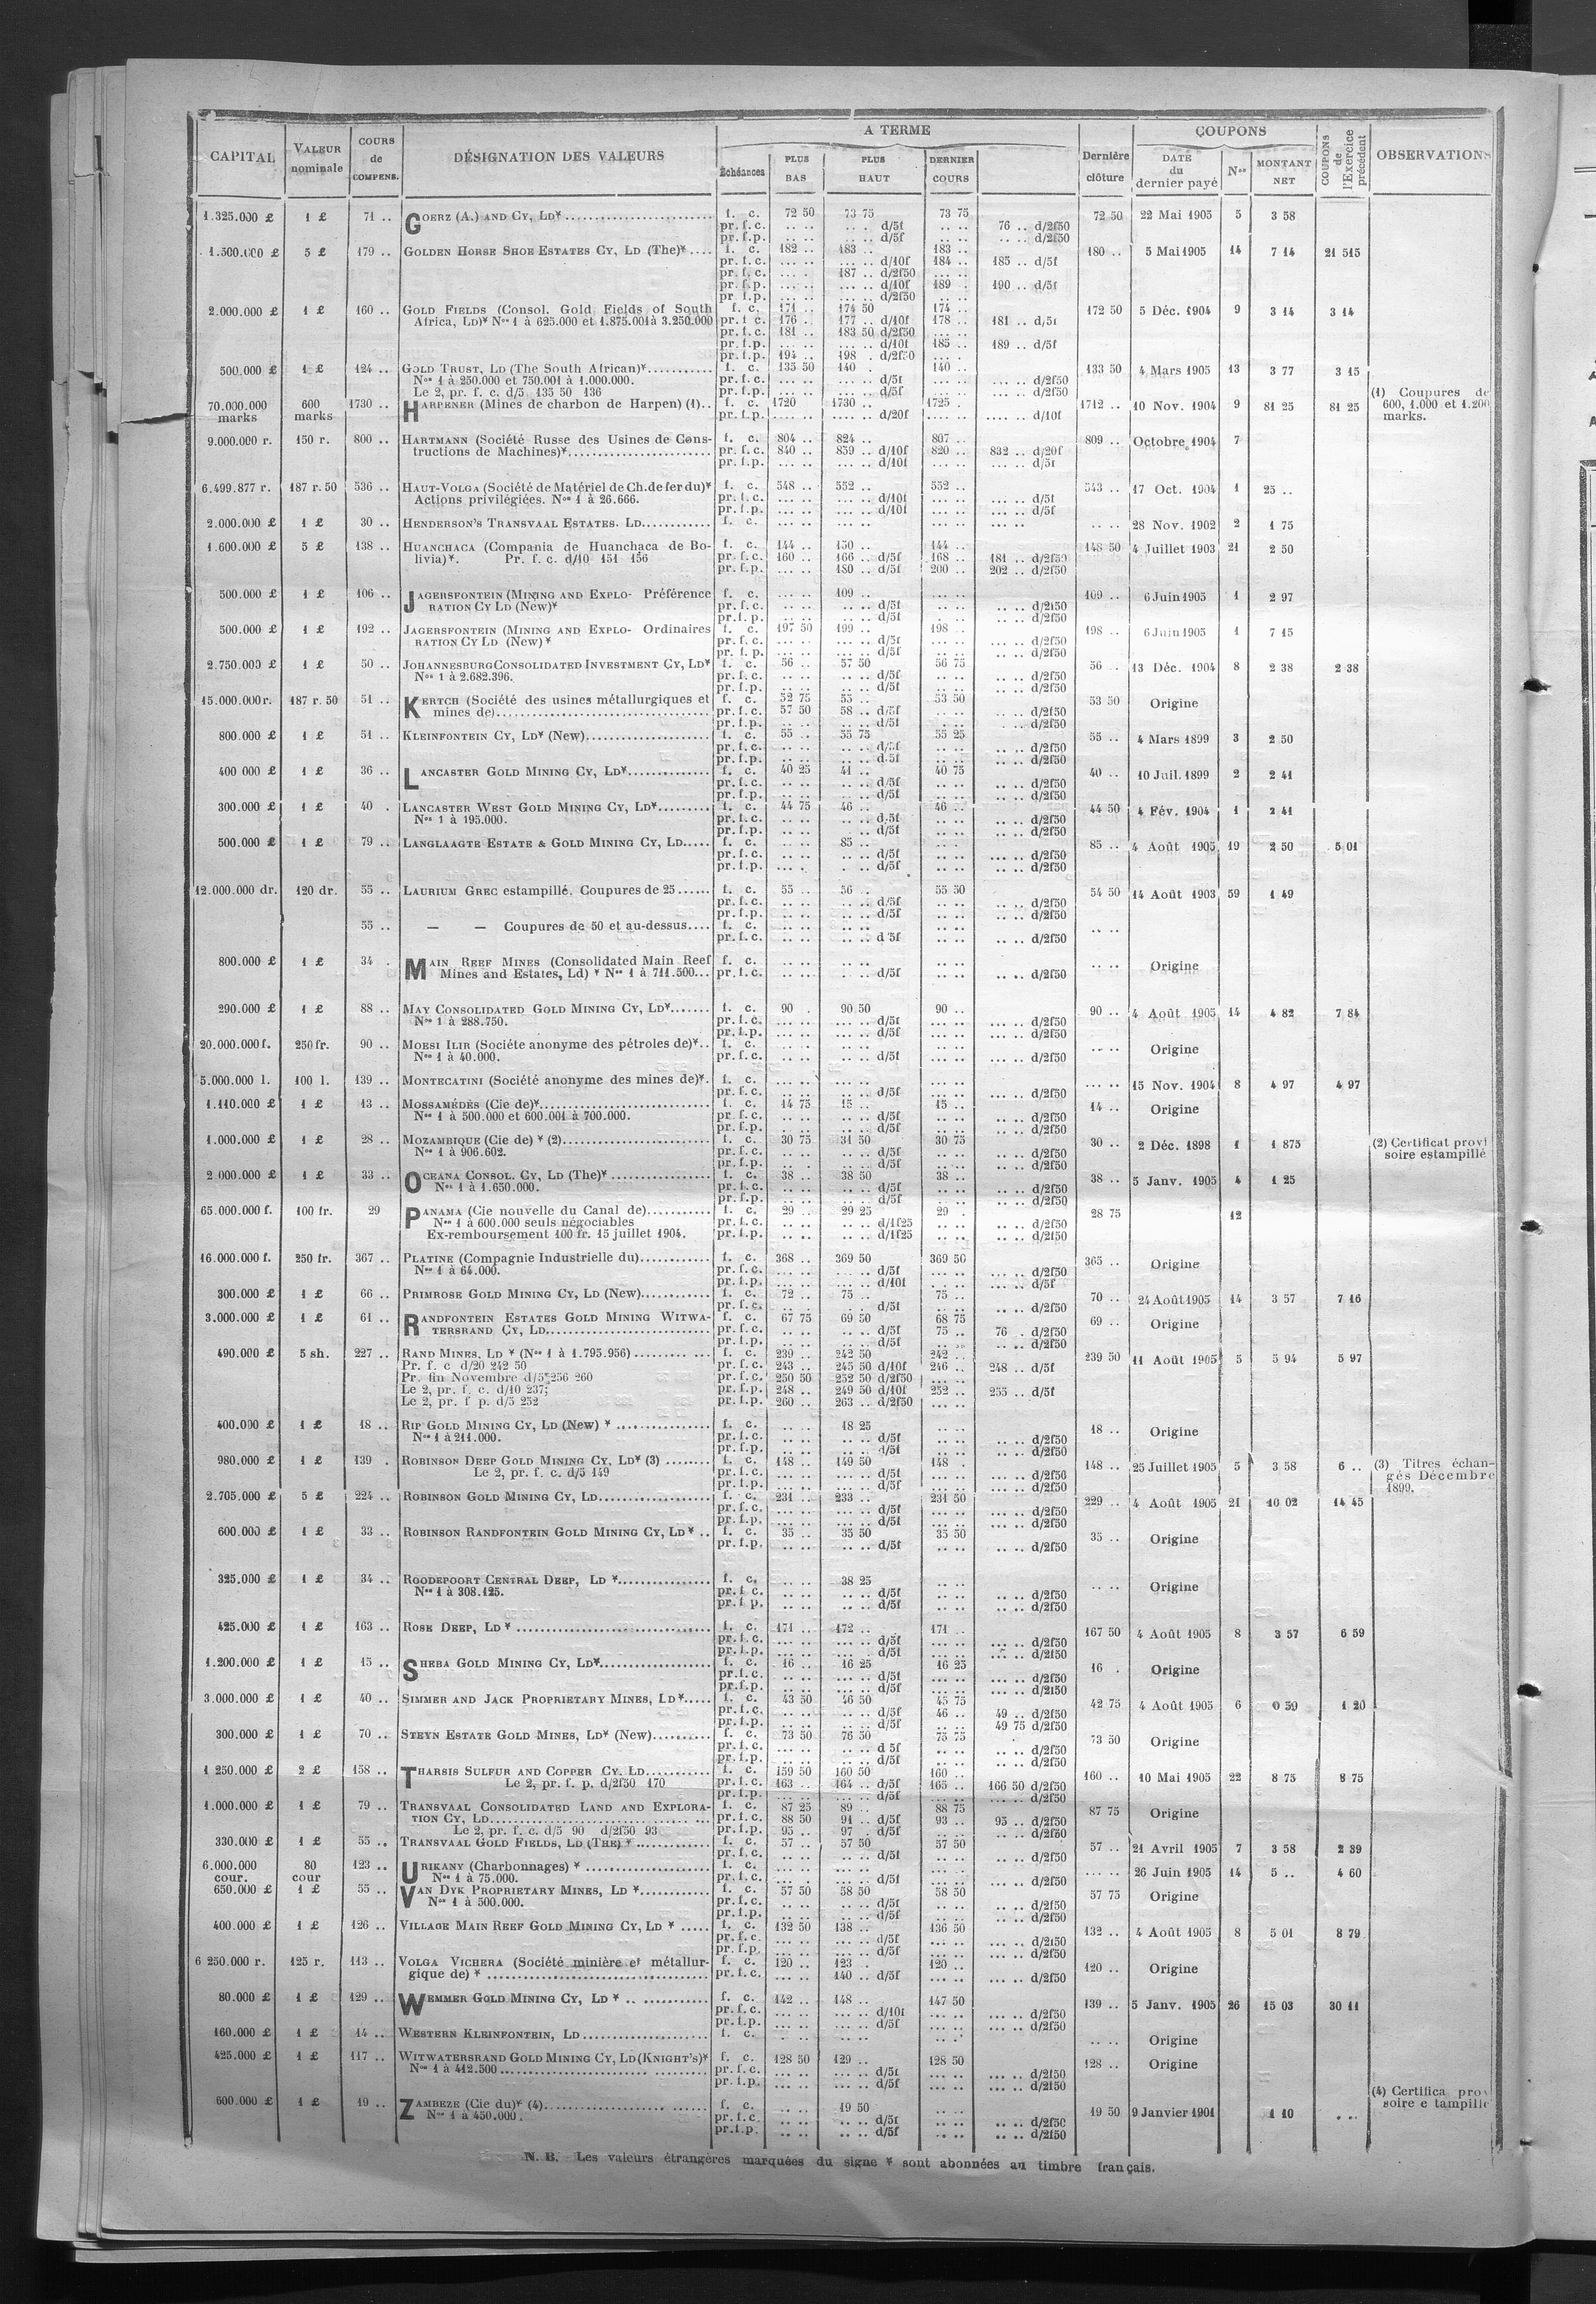 CAPITAL | VALEUR nominale | COURS de COMPENS. | DÉSIGNATION DES VALEURS | A TERME | Échéances | PLUS BAS | PLUS HAUT | DERNIER COURS | Dernière clôture | COUPONS | DATE du dernier payé | Nos | MONTANT NET | COUPONS de l'Exercice précédent | OBSERVATIONS
1.325.000 £ 1 £ 71 .. GOERZ (A.) AND CY, LD* f. c. 72 50 73 75 73 75 72 50 22 Mai 1905 5 3 58
pr. f. c. .. .. .. . d/5f .. .. 76 .. d/2f50
pr. f. p. .. .. .. .. d/5f .. .. d/2f50
1.500.000 £ 5 £ 179 .. GOLDEN HORSE SHOE ESTATES CY, LD (The)* f. c. 182 .. 183 .. 183 .. 180 .. 5 Mai 1905 14 7 14 21 515
pr. f. c. ... .. ... .. d/10f 184 .. 185 .. d/5f
pr. f. c. ... . 187 .. d/2f50 ... ..
pr. f. p. ... .. ... .. d/10f 189 .. 190 .. d/5f
pr. f. p. ... .. ... .. d/2f50
2.000.000 £ 1 £ 160 .. GOLD FIELDS (Consol. Gold Fields of South f. c. 171 .. 174 50 174 .. 172 50 5 Déc. 1904 9 3 14 3 14
Africa, LD)* Nos 1 à 625.000 et 1.875.001 à 3.250.000 pr. f. c. 176 . 177 .. d/10f 178 .. 181 .. d/5f
pr. f. c. 181 .. 183 50 d/2f50 ... ..
pr. f. p. ... .. ... .. d/10f 185 .. 189 .. d/5f
pr. f. p. 194 .. 198 . d/2f50 ... .
500.000 £ 1 £ 124 .. GOLD TRUST, LD (The South African)* f. c. 135 50 140 . 140 .. 133 50 4 Mars 1905 13 3 77 3 15
Nos 1 à 250.000 et 750.001 à 1.000.000. pr. f. c. ... .. ... .. d/5f ... .. ... .. d/2f50
Le 2, pr. f. c. d/5 135 50 136 pr. f. p. ... .. ... .. d/5f ... .. ... .. d/2f50
70.000.000 marks 600 marks 1730 .. HARPENER (Mines de charbon de Harpen) (1).. f. c. 1720 1730 .. 1725 . 1712 .. 10 Nov. 1904 9 81 25 81 25 (1) Coupures de 600, 1.000 et 1.200 marks.
pr. f. p. .... .. .... .. d/20f .... .. .... .. d/10f
9.000.000 r. 150 r. 800 .. HARTMANN (Société Russe des Usines de Cons- f. c. 804 .. 824 .. 807 .. 809 .. Octobre 1904 7
tructions de Machines)* pr. f. c. 840 .. 859 .. d/10f 820 .. 832 .. d/20f
pr. f. p. ... .. ... .. d/10f ... .. ... .. d/5f
6.499.877 r. 187 r. 50 536 .. HAUT-VOLGA (Société de Matériel de Ch. de fer du)* f. c. 548 .. 552 .. 552 .. 543 .. 17 Oct. 1904 1 25 ..
Actions privilégiées. Nos 1 à 26.666. pr. f. c. ... .. ... .. d/10f ... .. ... .. d/5f
pr. f. p. ... .. ... .. d/10f ... .. ... .. d/5f
2.000.000 £ 1 £ 30 .. HENDERSON'S TRANSVAAL ESTATES. LD f. c. .. .. 28 Nov. 1902 2 1 75
1.600.000 £ 5 £ 138 .. HUANCHACA (Compania de Huanchaca de Bo- f. c. 144 .. 150 .. 144 .. 148 50 4 Juillet 1903 21 2 50
livia)*. Pr. f. c. d/10 151 156 pr. f. c. 160 .. 166 .. d/5f 168 .. 181 .. d/2f50
pr. f. p. ... .. 180 .. d/5f 200 .. 202 .. d/2f50
500.000 £ 1 £ 106 .. JAGERSFONTEIN (MINING AND EXPLO- Préférence f. c. ... .. 109 .. ... .. 109 .. 6 Juin 1905 1 2 97
RATION CY LD (New)* pr. f. c. .. .. .. .. d/5f .. .. d/2f50
pr. f. p. .. .. .. .. d/5f .. .. d/2f50
500.000 £ 1 £ 192 .. JAGERSFONTEIN (MINING AND EXPLO- Ordinaires f. c. 197 50 199 .. 198 .. 198 .. 6 Juin 1905 1 7 15
RATION CY LD (New)* pr. f. c. ... .. ... .. d/5f ... .. .. .. d/2f50
pr. f. p. ... .. ... .. d/5f ... .. .. .. d/2f50
2.750.000 £ 1 £ 50 .. JOHANNESBURG CONSOLIDATED INVESTMENT CY, LD* f. c. 56 .. 57 50 56 75 56 .. 13 Déc. 1904 8 2 38 2 38
Nos 1 à 2.682.396. pr. f. c. .. .. .. .. d/5f .. .. .. .. d/2f50
pr. f. p. .. .. .. .. d/5f .. .. .. .. d/2f50
15.000.000 r. 187 r. 50 51 .. KERTCH (Société des usines métallurgiques et f. c. 52 75 55 .. 53 50 53 50 Origine
mines de) pr. f. c. 57 50 58 .. d/5f .. .. .. .. d/2f50
pr. f. p. .. .. .. .. d/5f .. .. . .. d/2f50
800.000 £ 1 £ 51 .. KLEINFONTEIN CY, LD* (New) f. c. 55 .. 55 75 55 25 55 .. 4 Mars 1899 3 2 50
pr. f. c. .. .. .. .. d/5f .. .. .. .. d/2f50
pr. f. p. .. .. .. .. d.5f .. .. .. .. d/2f50
400 000 £ 1 £ 36 .. LANCASTER GOLD MINING CY, LD* f. c. 40 25 41 .. 40 75 40 .. 10 Juil. 1899 2 2 41
pr. f. c. .. .. .. .. d/5f .. .. .. .. d/2f50
pr. f. p. .. .. .. .. d/5f .. .. .. .. d/2f50
300.000 £ 1 £ 40 . LANCASTER WEST GOLD MINING CY, LD* f. c. 44 75 46 .. 46 .. 44 50 4 Fév. 1904 1 2 41
Nos 1 à 195.000. pr. f. c. .. .. .. .. d.5f .. .. .. .. d/2f50
pr. f. p. .. .. .. .. d/5f .. .. .. .. d/2f50
500.000 £ 1 £ 79 .. LANGLAAGTE ESTATE & GOLD MINING CY, LD f. c. .. .. 85 .. .. .. 85 .. 4 Août 1905 19 2 50 5 01
pr. f. c. .. .. .. .. d/5f .. .. ... .. d/2f50
pr. f. p. ... . . .. d/5f .. .. ... .. d/2f50
12.000.000 dr. 120 dr. 55 .. LAURIUM GREC estampillé. Coupures de 25 f. c. 55 .. 56 .. 55 50 54 50 14 Août 1903 59 1 49
pr. f. c. .. .. .. .. d/5f .. .. .. .. d/2f50
pr. f. p. .. .. .. .. d/5f .. .. .. .. d/2f50
55 .. — — Coupures de 50 et au-dessus f. c. .. .. .. .. .. .. .. ..
pr. f. c. .. .. .. .. d 5f .. .. .. .. d/2f50
800.000 £ 1 £ 34 . MAIN REEF MINES (Consolidated Main Reef f. c. .. .. .. .. .. .. .. .. Origine
Mines and Estates, Ld) * Nos 1 à 711.500 pr. f. c. .. .. .. .. d/5f .. .. .. .. d/2f50
290.000 £ 1 £ 88 .. MAY CONSOLIDATED GOLD MINING CY, LD* f. c. 90 . 90 50 90 .. 90 .. 4 Août 1905 14 4 82 7 84
Nos 1 à 288.750. pr. f. c. ... .. ... .. d/5f ... .. ... .. d/2f50
pr. f. p. ... .. ... .. d/5f ... .. ... .. d/2f50
20.000.000 f. 250 fr. 90 .. MOESI ILIR (Sociéte anonyme des pétroles de)* f. c. .. .. .. .. .. .. .. .. Origine
Nos 1 à 40.000. pr. f. c. .. .. .. .. d/5f ... .. ... .. d/2f50
5.000.000 l. 100 l. 139 .. MONTECATINI (Société anonyme des mines de)*. f. c. ... .. ... .. ... .. ... .. 15 Nov. 1904 8 4 97 4 97
pr. f. c. ... .. ... .. d/5f ... .. ... .. d/2f50
1.110.000 £ 1 £ 13 .. MOSSAMÉDÈS (Cie de)* f. c. 14 75 15 .. 15 .. 14 .. Origine
Nos 1 à 500.000 et 600.001 à 700.000. pr. f. c. .. .. .. .. d/5f .. .. .. .. d/2f50
pr. f. p. .. .. .. .. d/5f .. .. .. .. d/2f50
1.000.000 £ 1 £ 28 .. MOZAMBIQUE (Cie de) * (2) f. c. 30 75 31 50 30 75 30 .. 2 Déc. 1898 1 1 875 (2) Certificat provi soire estampillé
Nos 1 à 906.602. pr. f. c. .. .. .. .. d/5f .. .. .. .. d/2f50
pr. f. p. .. . .. .. d/5f .. .. .. .. d/2f50
2 000.000 £ 1 £ 33 .. OCEANA CONSOL. CY, LD (The)* f. c. 38 .. 38 50 38 .. 38 .. 5 Janv. 1905 4 1 25
Nos 1 à 1.650.000. pr. f. c. .. .. .. .. d/5f .. .. .. .. d/2f50
pr. f. p. .. .. .. .. d/5f .. .. .. .. d/2f50
65.000.000 f. 100 fr. 29 PANAMA (Cie nouvelle du Canal de) f. c. 29 .. 29 25 29 . 28 75 12
Nos 1 à 600.000 seuls négociables pr. f. c. .. .. .. .. d/1f25 .. .. .. .. d/2f50
Ex-remboursement 100 fr. 15 juillet 1904. pr. f. p. .. .. .. .. d/1f25 .. .. .. .. d/2f50
16.000.000 f. 250 fr. 367 .. PLATINE (Compagnie Industrielle du) f. c. 368 .. 369 50 369 50 365 .. Origine
Nos 1 à 64.000. pr. f. c. ... .. ... .. d/5f ... .. ... .. d/2f50
pr. f. p. ... .. ... .. d/10f ... .. ... .. d/5f
300.000 £ 1 £ 66 .. PRIMROSE GOLD MINING CY, LD (New) f. c. 72 .. 75 .. 75 .. 70 .. 24 Août 1905 14 3 57 7 16
pr. f. c. .. . .. . d/5f .. .. .. .. d/2f50
3.000.000 £ 1 £ 61 .. RANDFONTEIN ESTATES GOLD MINING WITWA- f. c. 67 75 69 50 68 75 69 .. Origine
TERSRAND CY, LD pr. f. c. .. .. .. .. d/5f 75 .. 76 . d/2f50
pr. f. p. .. .. .. .. d/5f .. .. .. .. d/2f50
490.000 £ 5 sh. 227 .. RAND MINES, LD * (Nos 1 à 1.795.956) f. c. 239 .. 242 50 242 .. 239 50 11 Août 1905 5 5 94 5 97
Pr. f. c d/20 242 50 pr. f. c. 243 .. 245 50 d/10f 246 .. 248 .. d/5f
Pr. fin Novembre d/5 256 260 pr. f. c. 250 50 252 50 d/2f50 ... ..
Le 2, pr. f. c. d/10 237; pr. f. p. 248 .. 249 50 d/10f 252 .. 255 .. d/5f
Le 2, pr. f p. d/5 252 pr. f. p. 260 .. 263 .. d/2f50 ... ..
400.000 £ 1 £ 18 .. RIP GOLD MINING CY, LD (New) * f. c. .. .. 18 25 .. .. 18 .. Origine
Nos 1 à 211.000. pr. f. c. .. .. .. .. d/5f .. .. .. .. d/2f50
pr. f. p. .. .. .. .. d/5f .. .. .. .. d/2f50
980.000 £ 1 £ 139 . ROBINSON DEEP GOLD MINING CY, LD* (3) f. c. 148 .. 149 50 148 . 148 .. 25 Juillet 1905 5 3 58 6 .. (3) Titres échan- gés Décembre 1899.
Le 2, pr. f. c. d/5 149 pr. f. c. ... .. ... .. d/5f ... .. ... .. d/2f50
pr. f. p. ... .. ... .. d/5f ... .. ... .. d/2f50
2.705.000 £ 5 £ 224 .. ROBINSON GOLD MINING CY, LD f. c. 231 .. 233 .. 231 50 229 .. 4 Août 1905 21 10 02 14 45
pr. f. c. ... .. ... .. d/5f ... .. ... .. d/2f50
pr. f. p. ... .. ... .. d/5f ... .. ... .. d/2f50
600.000 £ 1 £ 33 .. ROBINSON RANDFONTEIN GOLD MINING CY, LD* f. c. 35 .. 35 50 35 50 35 .. Origine
pr. f. p. .. .. .. .. d/5f .. .. .. .. d/2f50
325.000 £ 1 £ 34 .. ROODEPOORT CENTRAL DEEP, LD * f. c. .. .. 38 25 .. .. .. .. Origine
Nos 1 à 308.125. pr. f. c. .. .. .. .. d/5f .. .. .. .. d/2f50
pr. f. p. .. .. .. .. d/5f .. .. .. .. d/2f50
425.000 £ 1 £ 163 .. ROSE DEEP, LD * f. c. 171 .. 172 .. 171 .. 167 50 4 Août 1905 8 3 57 6 59
pr. f. c. ... .. ... .. d/5f ... .. ... .. d/2f50
pr. f. p. ... .. ... .. d/5f ... .. ... .. d/2f50
1.200.000 £ 1 £ 15 .. SHEBA GOLD MINING CY, LD* f. c. 16 .. 16 25 16 25 16 . Origine
pr. f. c. .. .. .. .. d/5f .. .. .. .. d/2f50
pr. f. p. .. .. .. .. d/5f .. .. .. .. d/2f50
3.000.000 £ 1 £ 40 .. SIMMER AND JACK PROPRIETARY MINES, LD* f. c. 43 50 46 50 45 75 42 75 4 Août 1905 6 0 59 1 20
pr. f. c. .. .. .. .. d/5f 46 .. 49 .. d/2f50
pr. f. p. .. .. .. .. d/5f .. .. 49 75 d/2f50
300.000 £ 1 £ 70 .. STEYN ESTATE GOLD MINES, LD* (New) f. c. 73 50 76 50 75 75 73 50 Origine
pr. f. c. ... .. .. .. d 5f .. .. .. .. d/2f50
pr. f. p. ... .. .. .. d/5f .. .. .. .. d/2f50
1 250.000 £ 2 £ 158 .. THARSIS SULFUR AND COPPER CY. LD f. c. 159 50 160 50 160 .. 160 .. 10 Mai 1905 22 8 75 8 75
Le 2, pr. f. p. d/2f50 170 pr. f. c. 163 .. 164 .. d/5f 165 .. 166 50 d/2f50
pr. f. p. ... .. ... .. d/5f ... .. ... .. d/2f50
1.000.000 £ 1 £ 79 .. TRANSVAAL CONSOLIDATED LAND AND EXPLORA- f. c. 87 25 89 .. 88 75 87 75 Origine
TION CY, LD pr. f. c. 88 50 91 .. d/5f 93 .. 95 .. d/2f50
Le 2, pr. f. c. d/5 90 d/2f50 93 pr. f. p. 95 .. 97 . d/5f .. .. .. .. d/2f50
330.000 £ 1 £ 55 .. TRANSVAAL GOLD FIELDS, LD (THE) * f. c. 57 .. 57 50 57 50 57 .. 21 Avril 1905 7 3 58 2 39
pr. f. c. .. .. .. .. d/5f .. .. .. .. d/2f50
6.000.000 cour. 80 cour 123 .. URIKANY (Charbonnages) * f. c. ... .. ... .. ... .. ... .. 26 Juin 1905 14 5 .. 4 60
Nos 1 à 75.000. pr. f. c. ... . ... .. d/5f ... .. ... .. d/2f50
650.000 £ 1 £ 55 .. VAN DYK PROPRIETARY MINES, LD * f. c. 57 50 58 50 58 50 57 75 Origine
Nos 1 à 500.000. pr. f. c. .. .. .. .. d/5f .. .. .. .. d/2f50
pr. f. p. .. .. .. .. d/5f .. .. .. .. d/2f50
400.000 £ 1 £ 126 .. VILLAGE MAIN REEF GOLD MINING CY, LD * f. c. 132 50 138 .. 136 50 132 .. 4 Août 1905 8 5 01 8 79
pr. f. c. ... .. ... .. d/5f ... .. ... .. d/2f50
pr. f. p. ... .. ... .. d/5f ... .. ... .. d/2f50
6 250.000 r. 125 r. 113 .. VOLGA VICHERA (Société minière et métallur- f. c. 120 .. 123 . 120 .. 120 .. Origine
gique de) * pr. f. c. ... .. 140 .. d/5f ... .. ... .. d/2f50
80.000 £ 1 £ 129 .. WEMMER GOLD MINING CY, LD * f. c. 142 .. 148 .. 147 50 139 .. 5 Janv. 1905 26 15 03 30 11
pr. f. c. ... .. ... .. d/10f ... .. ... .. d/2f50
pr. f. p. ... .. ... .. d/5f ... .. ... .. d/2f50
160.000 £ 1 £ 14 .. WESTERN KLEINFONTEIN, LD f. c. .. .. .. .. .. .. .. .. Origine
425.000 £ 1 £ 117 .. WITWATERSRAND GOLD MINING CY, LD (KNIGHT'S)* f. c. 128 50 129 .. 128 50 128 .. Origine
Nos 1 à 412.500 pr. f. c. ... .. ... .. d/5f ... .. ... .. d/2f50
pr. f. p. ... .. ... .. d/5f ... .. ... .. d/2f50
600.000 £ 1 £ 19 .. ZAMBEZE (Cie du)* (4) f. c. .. .. 19 50 .. .. 19 50 9 Janvier 1901 1 10 .. .. (4) Certifica pro soire e tampillé
Nos 1 à 450.000. pr. f. c. .. .. .. .. d/5f .. .. .. .. d/2f50
pr. f. p. .. .. .. .. d/5f .. .. .. .. d/2f50
N. B. Les valeurs étrangères marquées du signe * sont abonnées au timbre français.